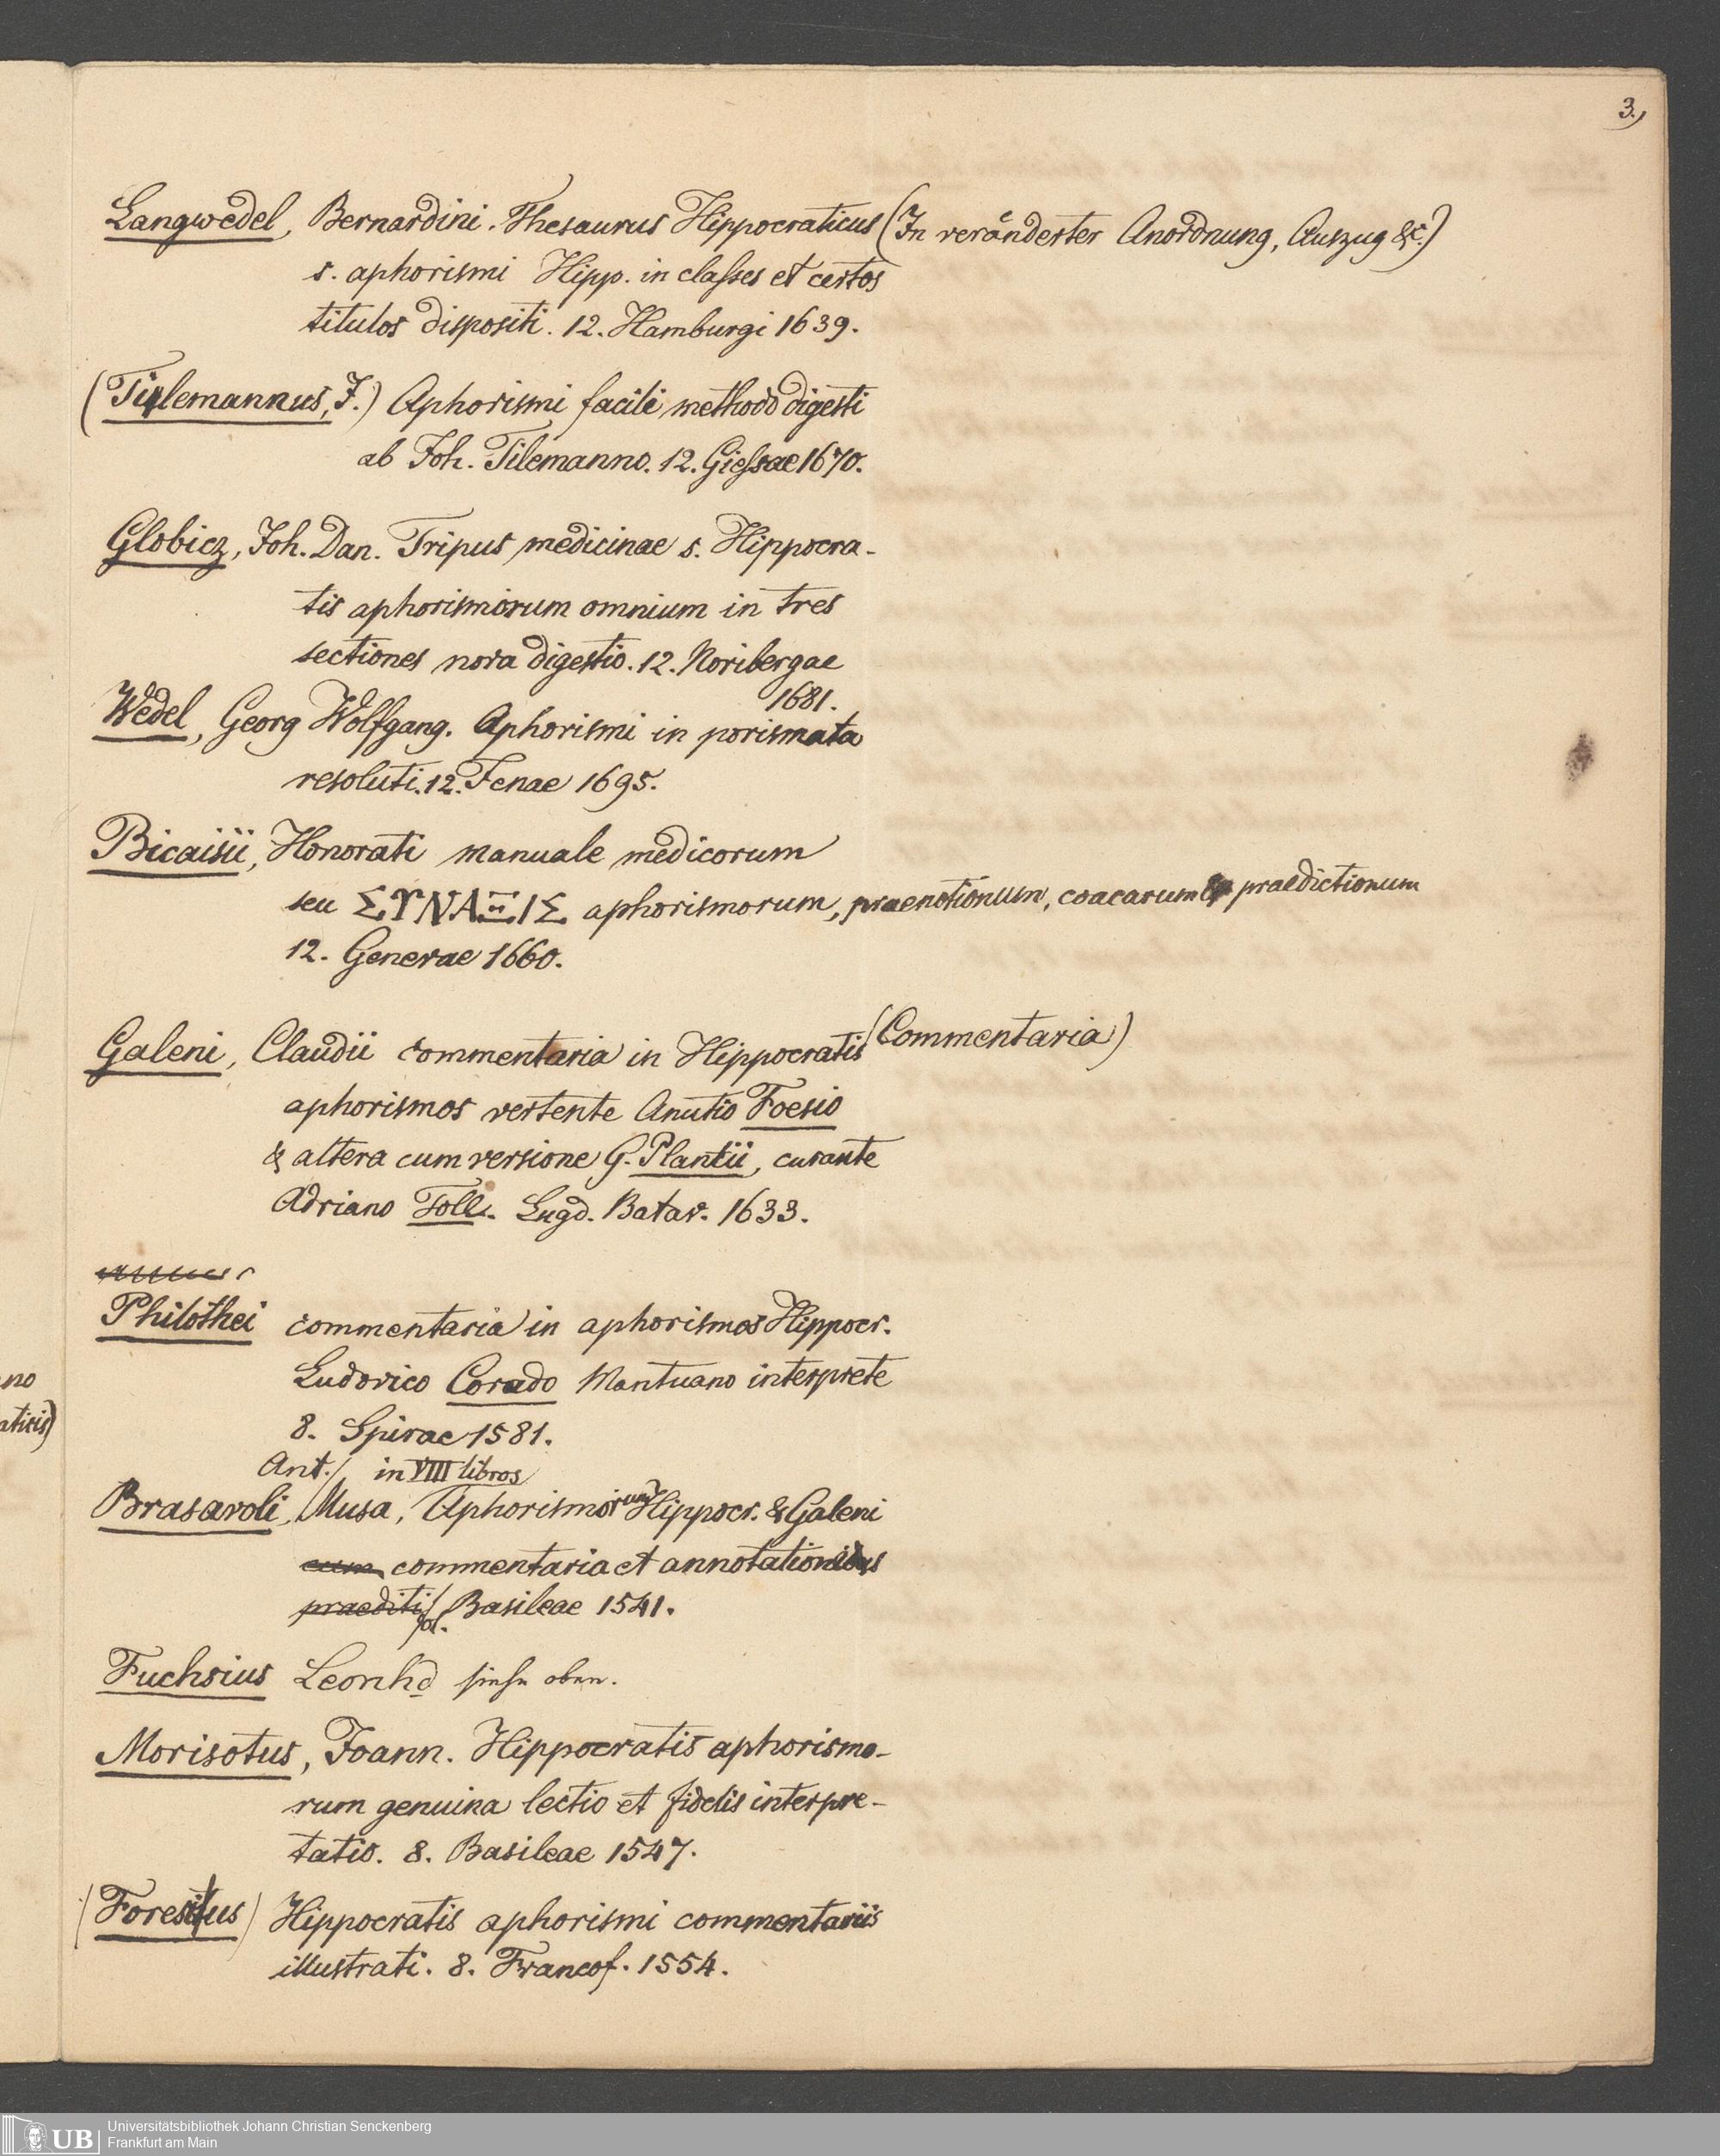 3.,
Langwedel, Bernardini. Thesaurus Hippocraticus (In veränderter Anordnung, Auszug &c.)
s. aphorismi Hipp. in classes et certos
titulos dispositi. 12. Hamburgi 1639.
(Tilemannus, J.) Aphorismi facili methodo digesti
ab Joh. Tilemanno. 12. Giessae 1670.
Globicz, Joh. Dan. Tripus medicinae s. Hippocra-
tis aphorismorum omnium in tres
sectiones nova digestio. 12. Noribergae
1681.
Wedel, Georg Wolfgang. Aphorismi in porismata
resoluti. 12. Jenae 1695.
Bicaisii, Honorati manuale medicorum
seu ΣΥΝΑΞΙΣ aphorismorum, praenotionum, coacarum & praedictionum
12. Genevae 1660.
Galeni, Claudii commentaria in Hippocratis (Commentaria)
aphorismos vertente Anutio Foesio
& altera cum versione G. Plantii, curante
Adriano Toll. Lugd. Batav. 1633.
Philothei commentaria in aphorismos Hippocr.
Ludovico Corado Mantuano interprete
8. Spirae 1581.
Ant. / in VIII libros
Brasavoli, Musa, Aphorismorum Hippocr. & Galeni
cum commentaria et annotationes
praediti / fol. Basileae 1541.
Fuchsius Leonhd siehe oben.
Morisotus, Joann. Hippocratis aphorismo-
rum genuina lectio et fidelis interpre-
tatio. 8. Basileae 1547.
(Forestus) Hippocratis aphorismi commentariis
illustrati. 8. Francof. 1554.
no
aticis)
UB
Universitätsbibliothek Johann Christian Senckenberg
Frankfurt am Main